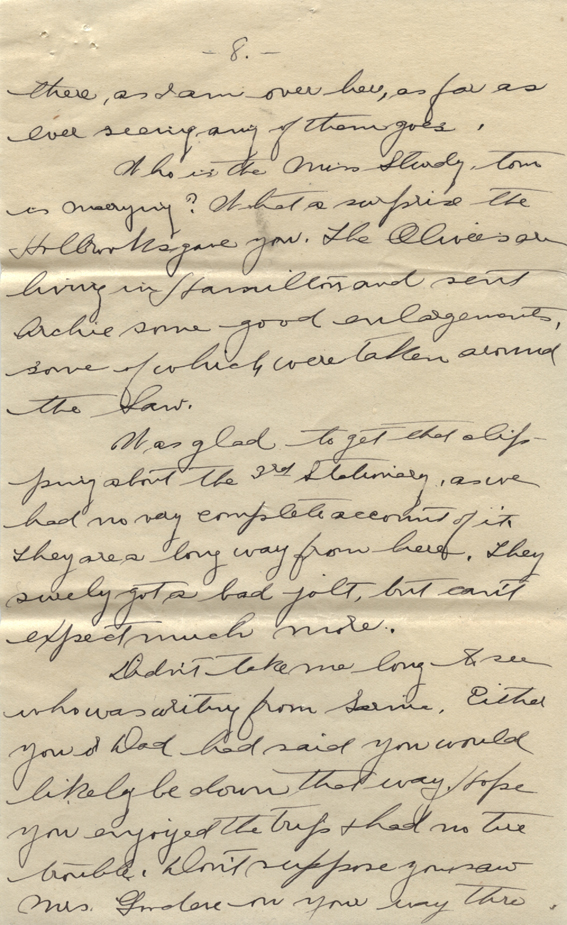 - 8. -
there, as I am over here, as far as
ever seeing any of them goes.
Who is the Miss Study, tom
is marrying? What a surprise the
Hollbrooks gave you. The Olivers are
living in Hamilton and sent
Archie some good enlargements,
some of which were taken around
the Law.
Was glad to get that clip-
ping about the 3rd Stationary, as we
had no very complete account of it.
They are a long way from here. They
surely got a bad jolt, but can't
expect much more.
Didn't take me long to see
who was writing from Sarnia. Either
you or Dad had said you would
likely be down that way. Hope
you enjoyed the trip & had no tire
trouble. Don't suppose you saw
Mrs. on your way thro.